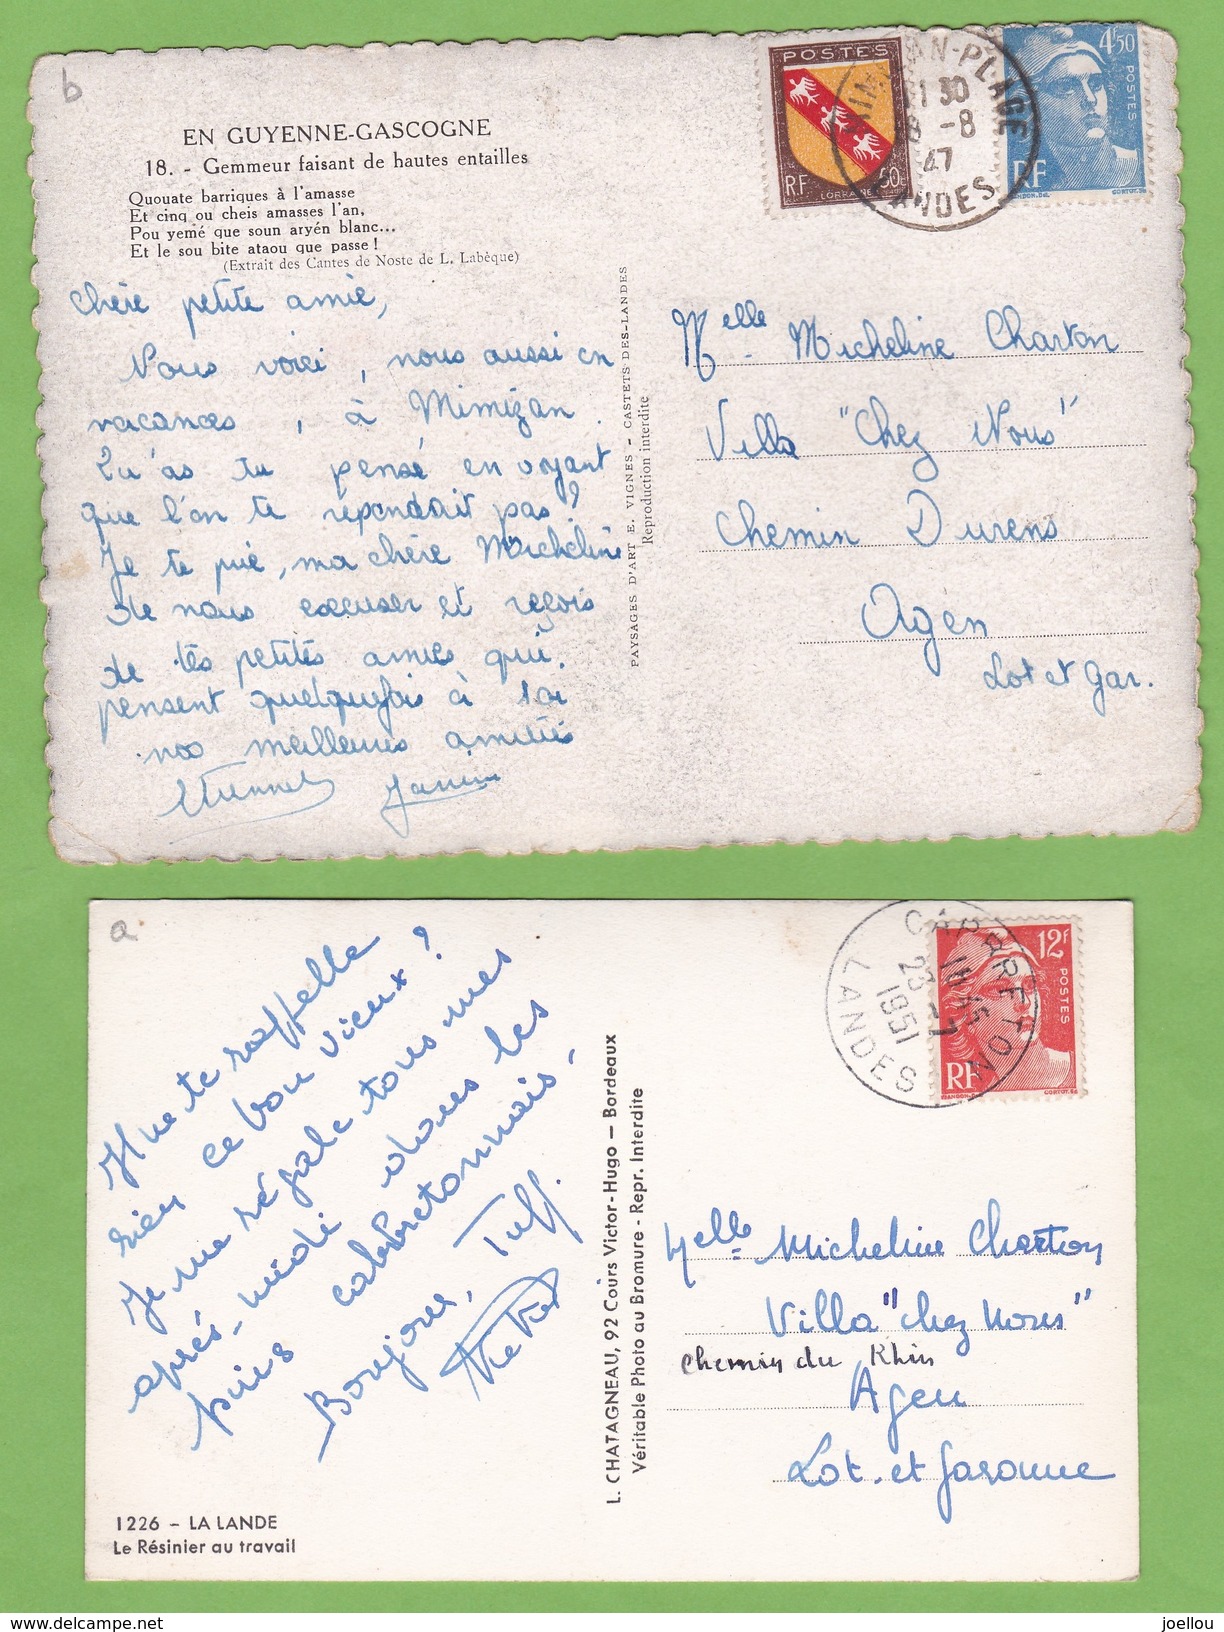 b
EN GUYENNE-GASCOGNE
18. - Gemmeur faisant de hautes entailles
Quouate barriques à l'amasse
Et cinq ou cheis amasses l'an,
Pou yemé que soun aryén blanc...
Et le sou bite ataou que passe !
(Extrait des Cantes de Noste de L. Labèque)
Chère petite amie,
Nous voici, nous aussi en
vacances, à Mimizan.
Qu'as tu pensé en voyant
que l'on te répondait pas ?
Je te prie, ma chère Micheline
de nous excuser et reçois
de tes petites amies qui
pensent quelquefois à toi
nos meilleures amitiés
Janine
PAYSAGES D'ART E. VIGNES - CASTETS-DES-LANDES
Reproduction interdite
POSTES
RF
LORRAINE
MIMIZAN-PLAGE
18 -8
47
LANDES
4F50
POSTES
RF
Melle Micheline Charton
Villa "Chez Nous"
Chemin Durens
Agen
Lot et Gar.
a
Il ne te rappelle
rien ce bon vieux ?
Je me régale tous mes
après-midi dans les
pins capbretonnais.
Bonjour, Tuff.
L. CHATAGNEAU, 92 Cours Victor-Hugo — Bordeaux
Véritable Photo au Bromure - Repr. Interdite
CAPBRETON
23 -7
1951
LANDES
12F
POSTES
RF
Melle Micheline Charton
Villa "chez nous"
chemin du Rhin
Agen
Lot-et Garonne
1226 - LA LANDE
Le Résinier au travail
www.delcampe.net
joellou